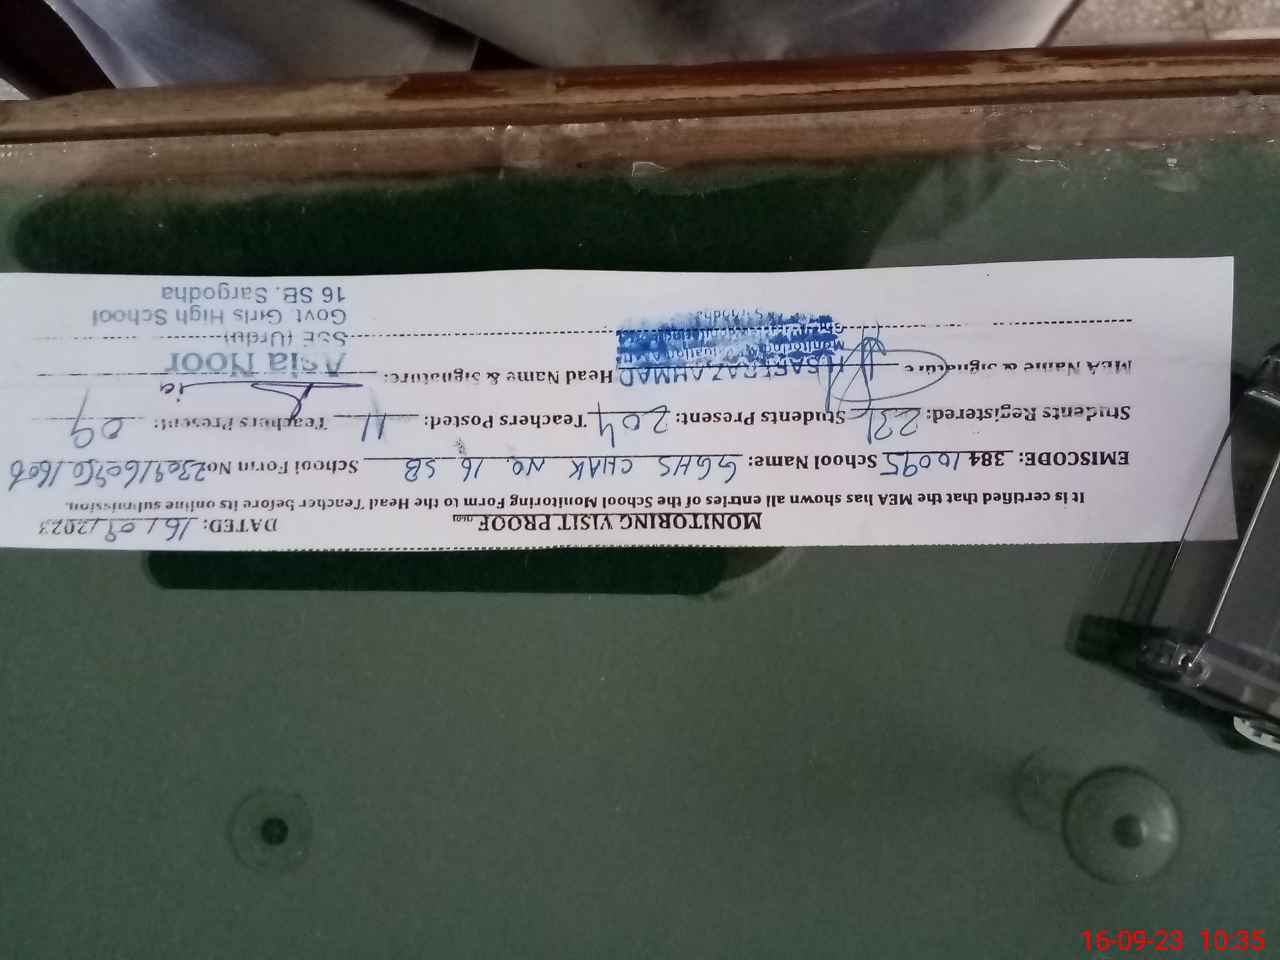 MONITORING VISIT PROOF DATED: 16/09/2023
It is certified that the MEA has shown all entries of the School Monitoring Form to the Head Teacher before its online submission.
EMISCODE: 384 10095 School Name: GGHS CHAK NO. 16 SB School Form No:
Students Registered: 221 Students Present: 204 Teachers Posted: 11 Teachers Present: 09
MEA Name & Signature SARFRAZ AHMAD Head Name & Signature: Asia Noor
SSE (Urdu)
Govt. Girls High School
16 SB. Sargodha
16-09-23 10:35